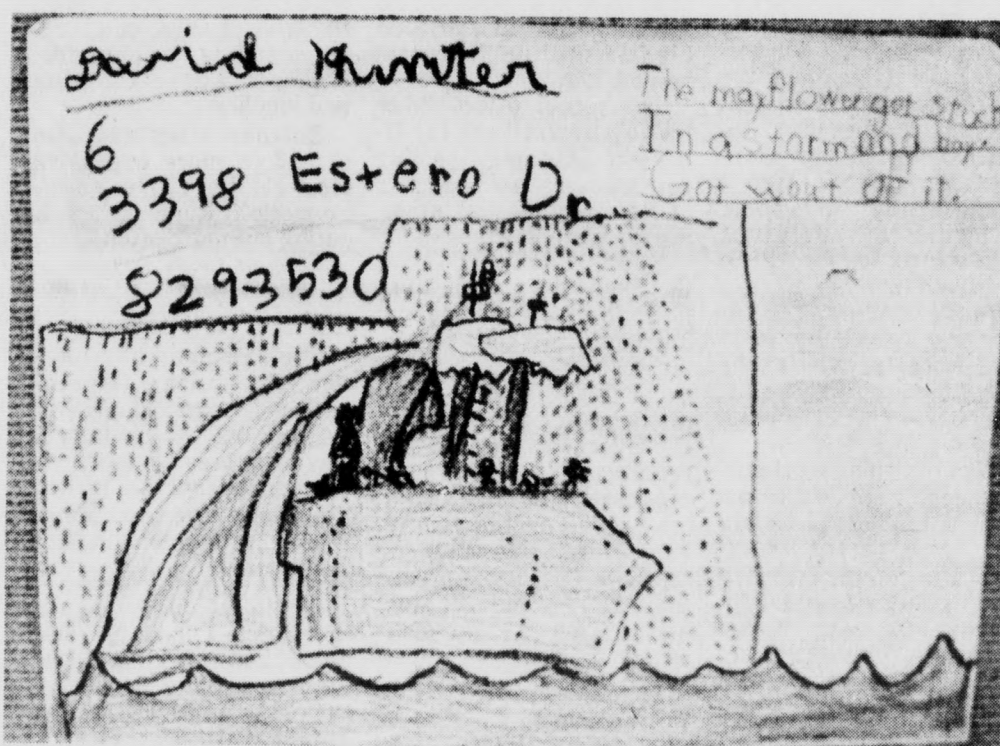 David Hunter
6
3398 Estero Dr.
8293530
The mayflower get stuck
In a storm and
Got out of it.